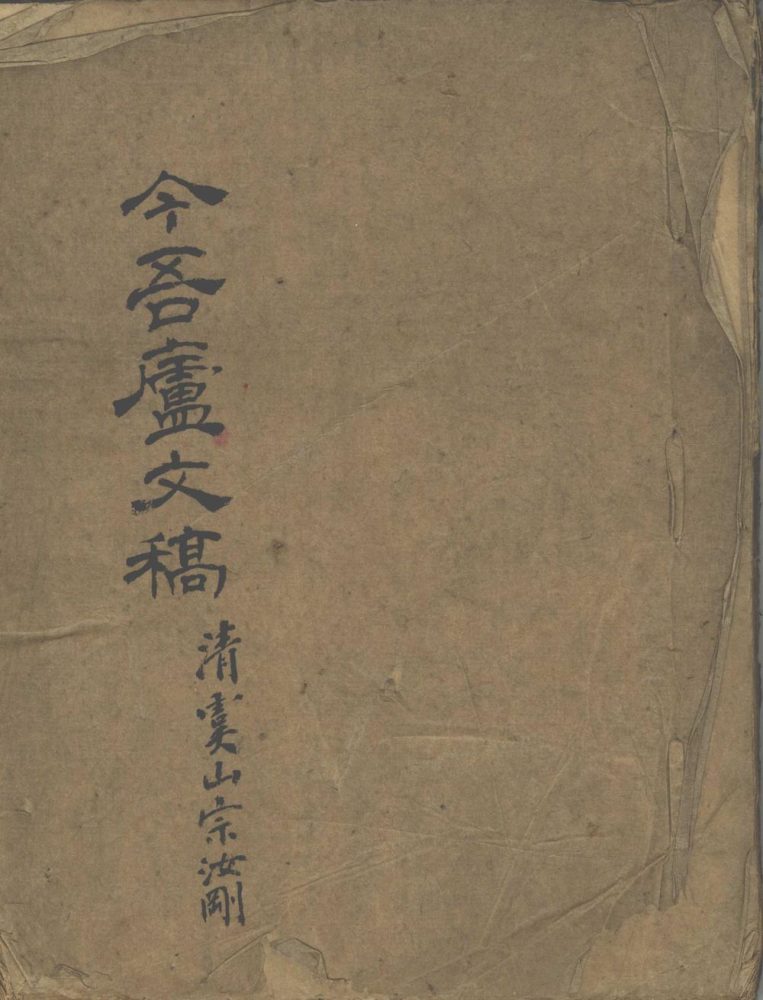 今吾廬文稿
清虞山宗汝剛